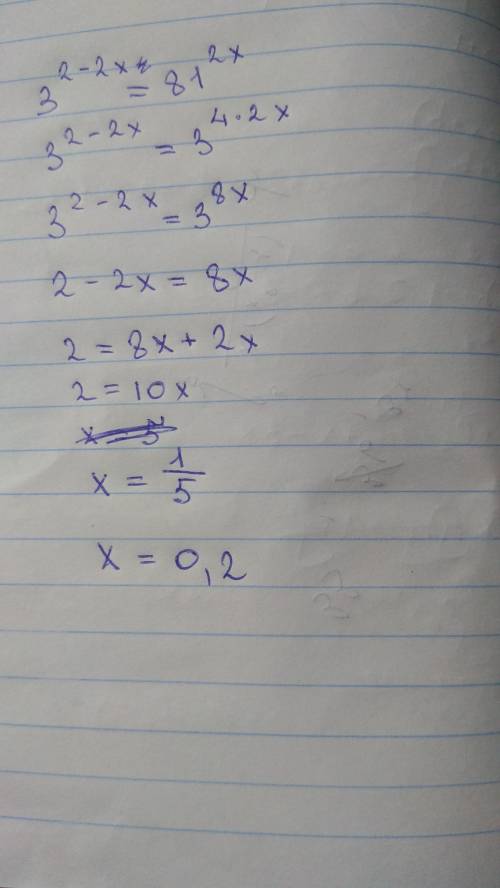 3^{2-2x} = 81^{2x}
3^{2-2x} = 3^{4·2x}
3^{2-2x} = 3^{8x}
2 - 2x = 8x
2 = 8x + 2x
2 = 10x
x = 1/5
x = 0,2